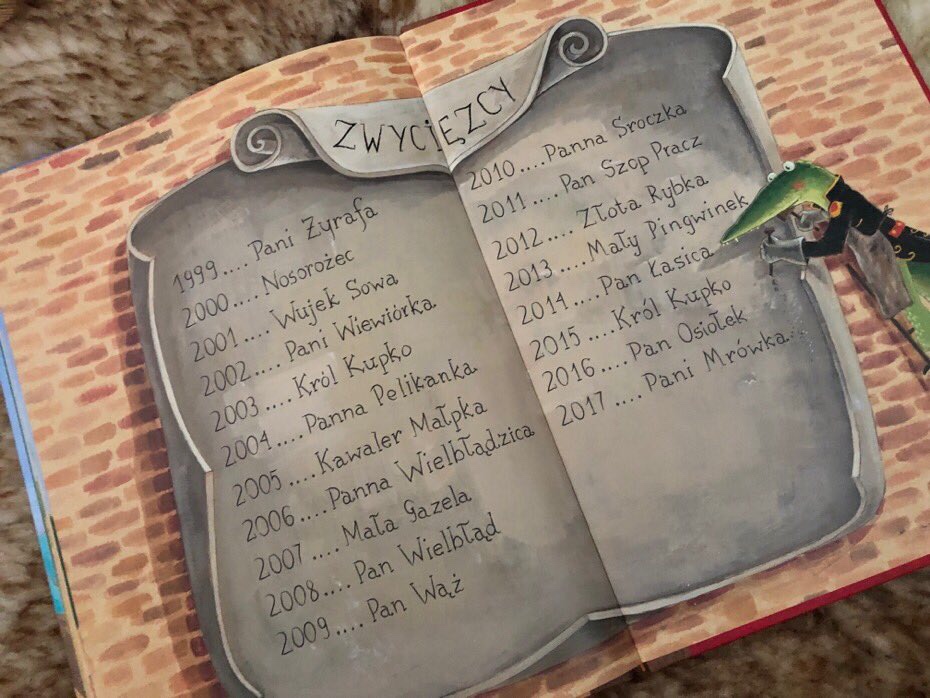 ZWYCIĘZCY
1999.... Pani Żyrafa
2000.... Nosorożec
2001.... Wujek Sowa
2002.... Pani Wiewiórka
2003.... Król Kupko
2004.... Panna Pelikanka
2005.... Kawaler Małpka
2006.... Panna Wielbłądzica
2007.... Mała Gazela
2008.... Pan Wielbłąd
2009.... Pan Wąż
2010.... Panna Sroczka
2011.... Pan Szop Pracz
2012.... Złota Rybka
2013.... Mały Pingwinek
2014.... Pan Łasica
2015.... Król Kupko
2016.... Pan Osiołek
2017.... Pani Mrówka